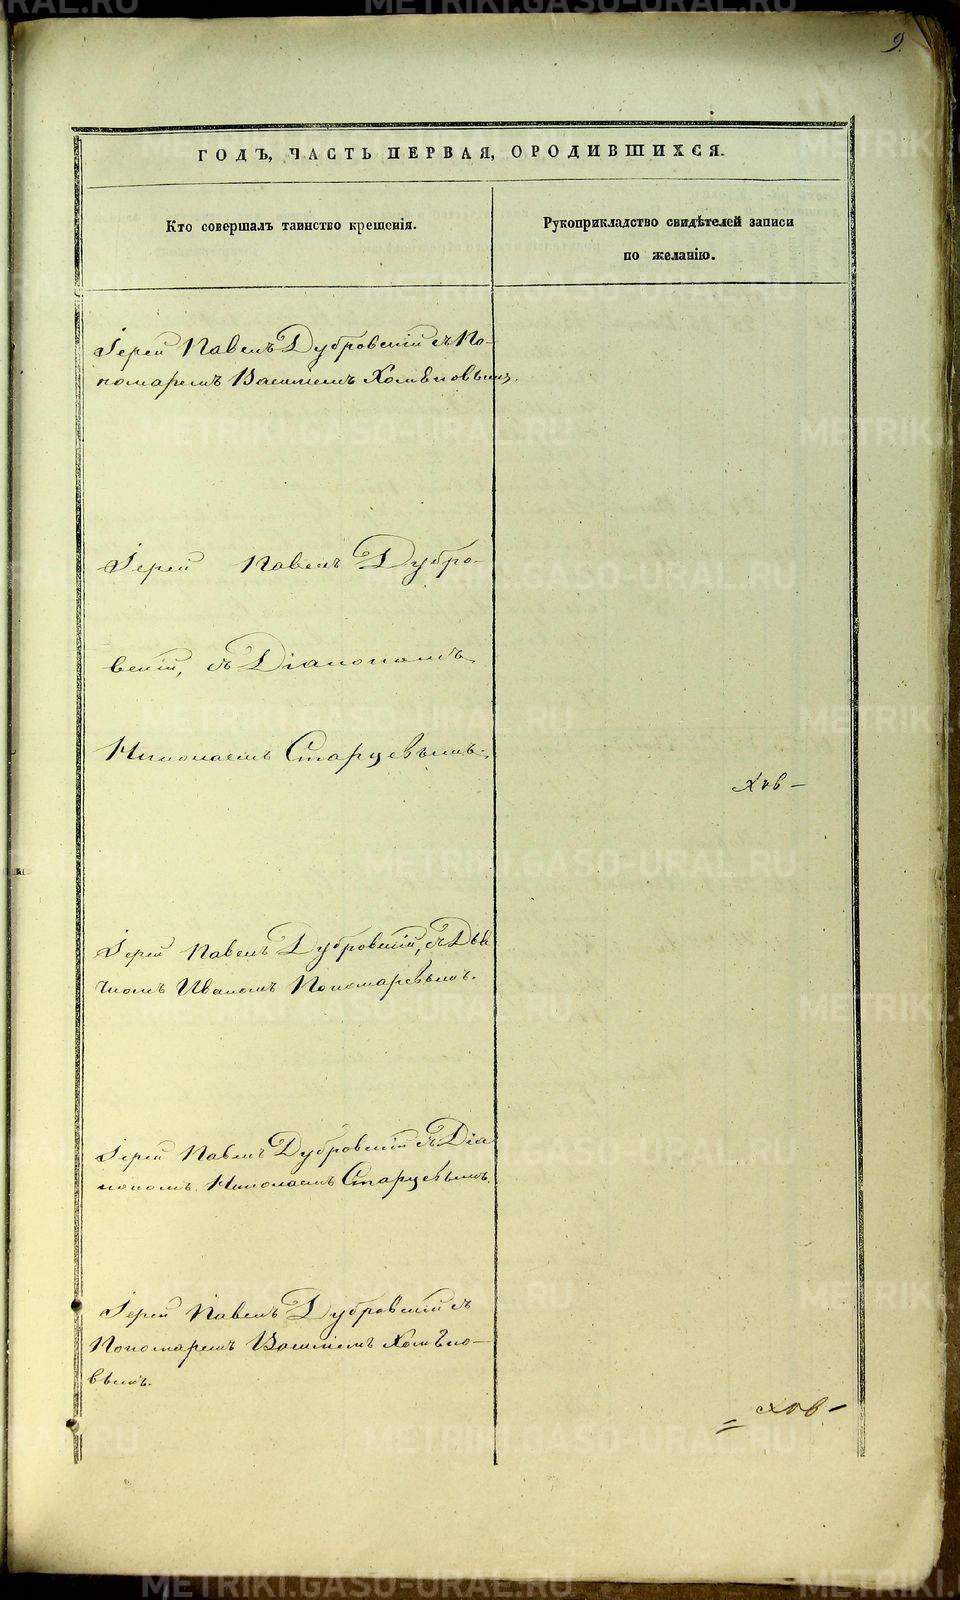 9.
ГОДЪ, ЧАСТЬ ПЕРВАЯ, О РОДИВШИХСЯ.
Кто совершалъ таинство крещенія.
Рукоприкладство свидѣтелей записи
по желанію.
Іерей Павелъ Дубровскій съ По-
номаремъ Василіемъ Хомѣковымъ.
Іерей Павелъ Дубро-
вскій, съ Діакономъ
Николаемъ Старцевымъ.
Іерей Павелъ Дубровскій, съ Дья
чкомъ Иваномъ Пономаревымъ.
Іерей Павелъ Дубровскій съ Діа
кономъ Николаемъ Старцевымъ.
Іерей Павелъ Дубровскій съ
Пономаремъ Василіемъ Хомѣко-
вымъ.
METRIKI.GASO-URAL.RU